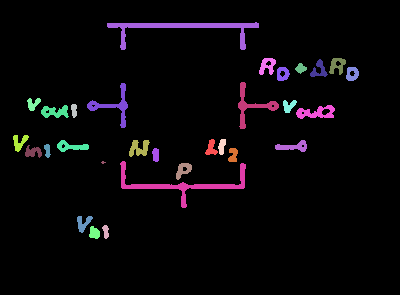 R_D + ΔR_D
V_out1
V_out2
V_in1
M_1
M_2
P
V_b1